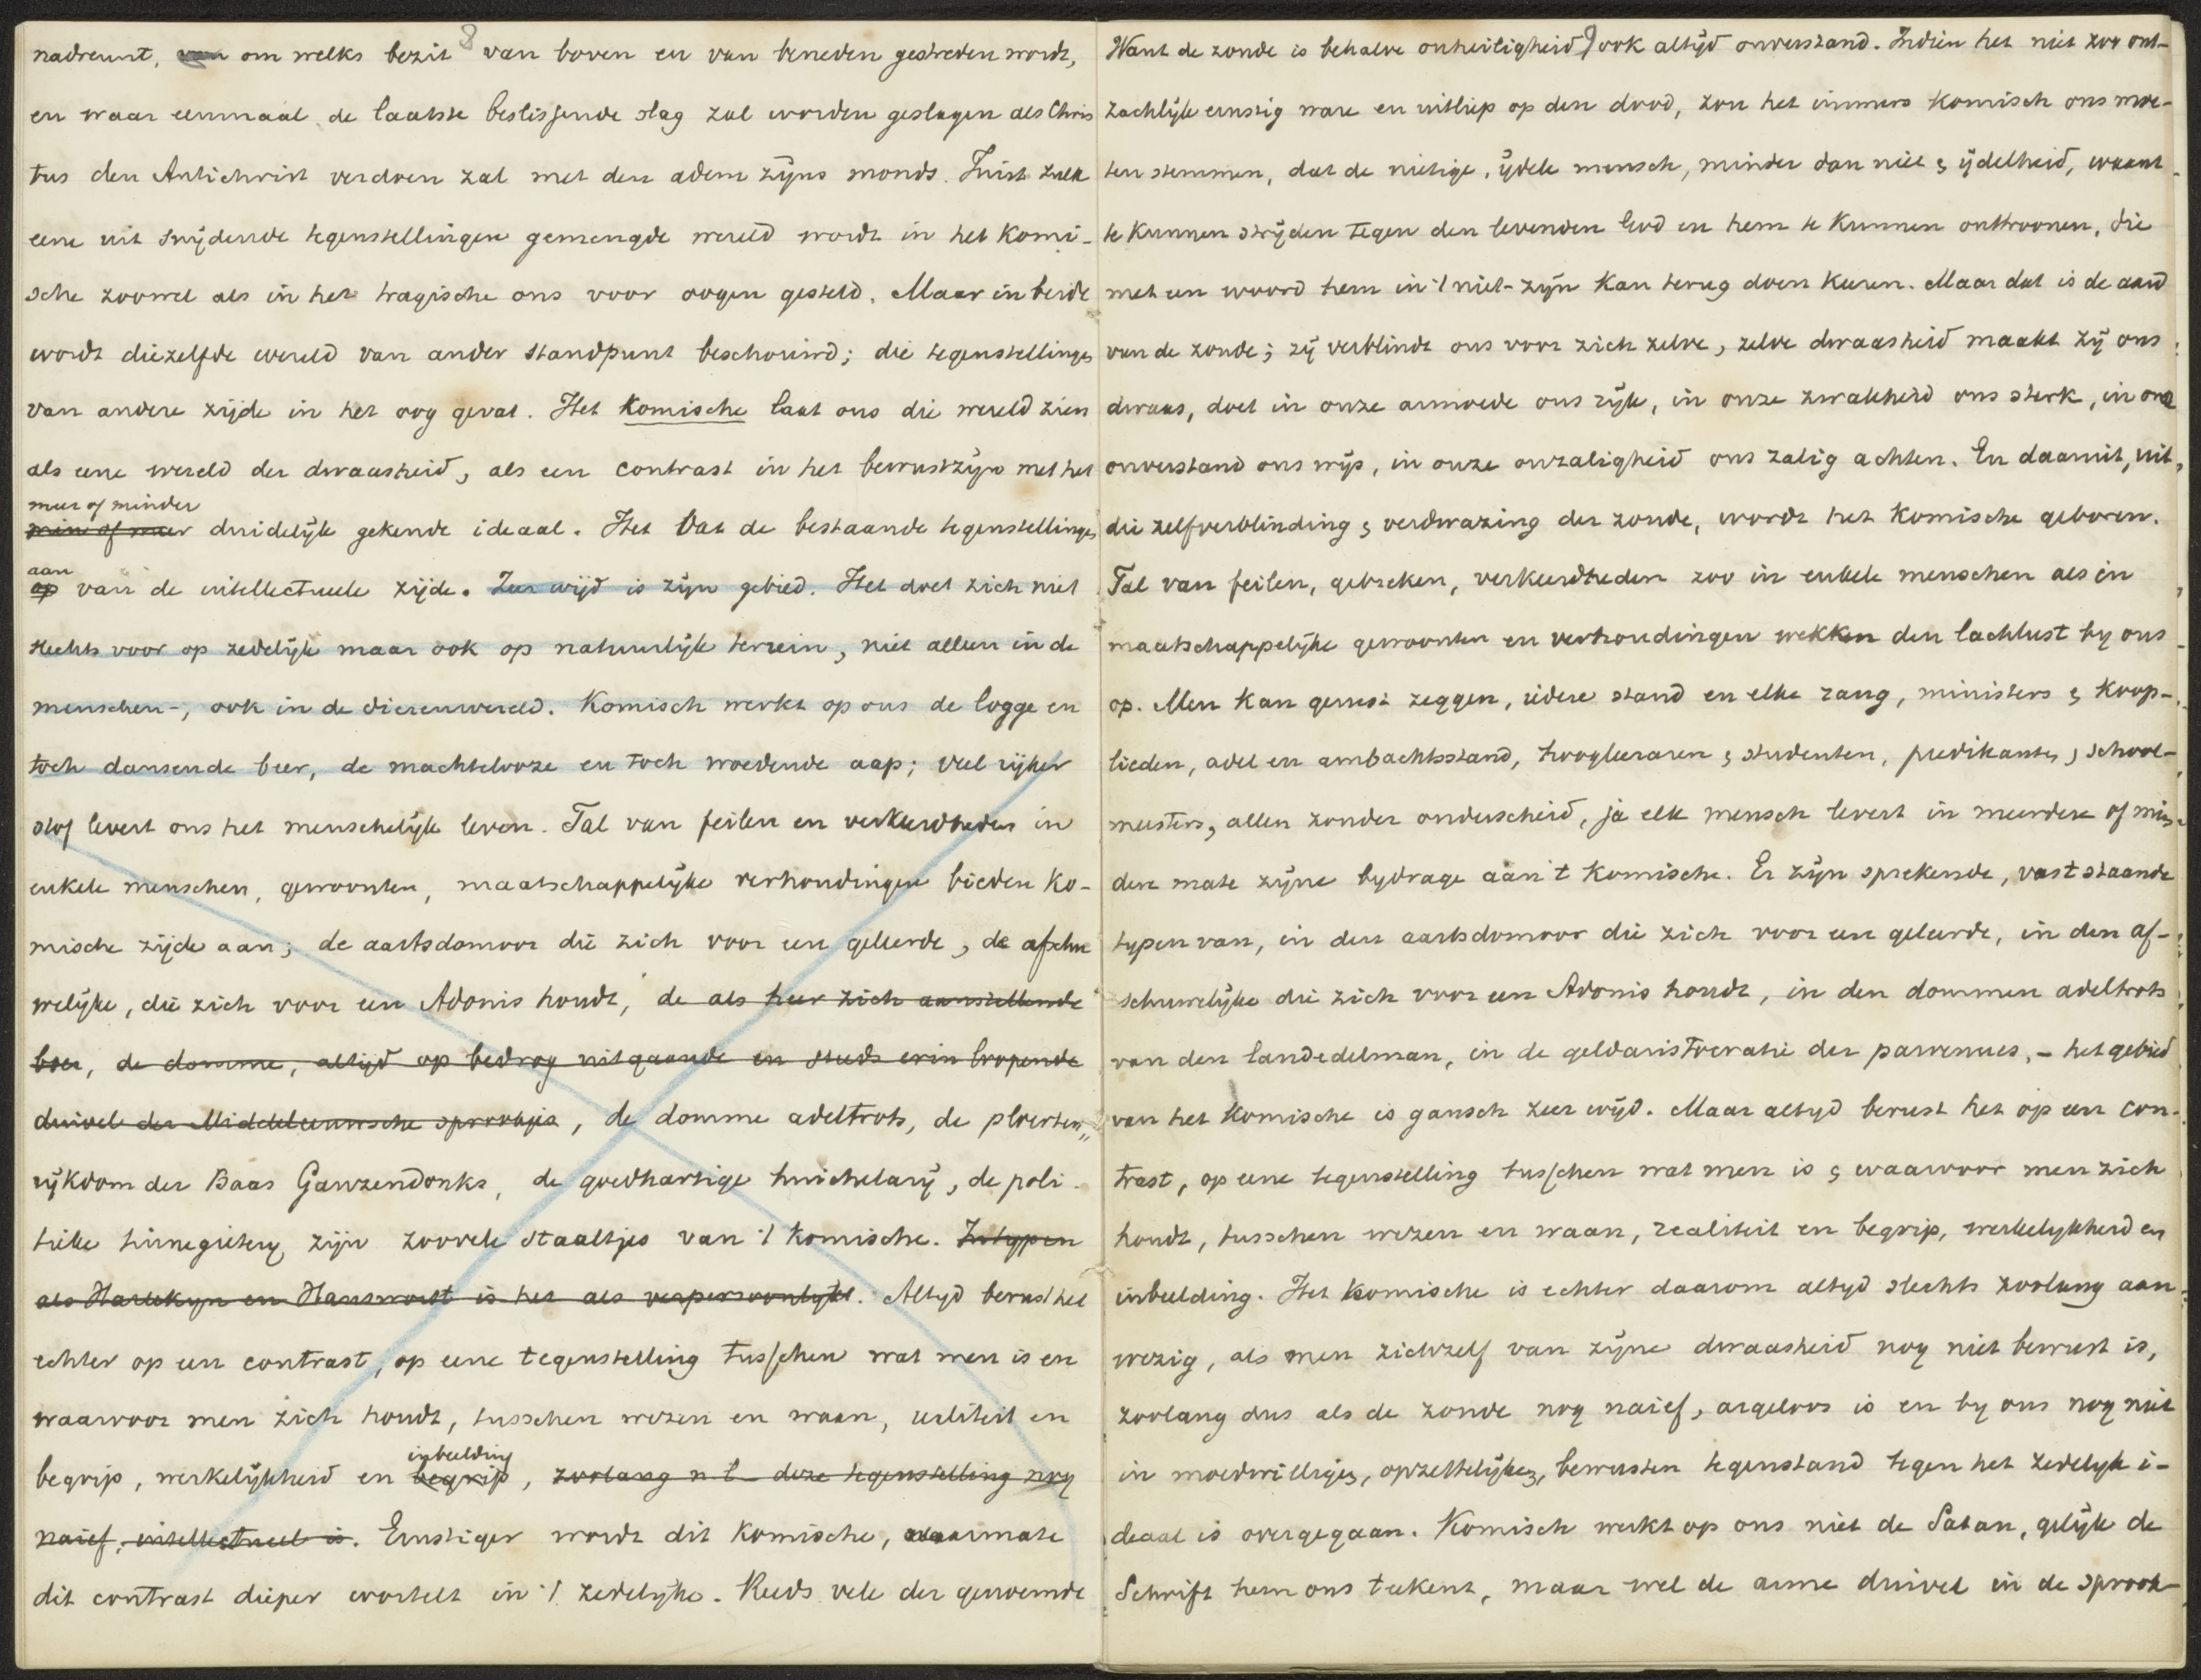 8
nadreunt, om welks bezit van boven en van beneden gestreden wordt,
en waar eenmaal de laatste beslissende slag zal worden geslagen als Chris
tus den Antichrist verdoen zal met den adem zijns monds. Juist zulk
eene uit snijdende tegenstellingen gemengde wereld wordt in het komi-
sche zoowel als in het tragische ons voor oogen gesteld. Maar in beide
wordt diezelfde wereld van ander standpunt beschouwd; die tegenstellingen
van andere zijde in het oog gevat. Het komische laat ons die wereld zien
als eene wereld der dwaasheid, als een contrast in het bewustzijn met het
meer of minder
min of meer duidelijk gekende ideaal. Het vat de bestaande tegenstellingen
aan
op van de intellectueele zijde. Zeer wijd is zijn gebied. Het doet zich niet
slechts voor op zedelijk maar ook op natuurlijk terrein, niet alleen in de
menschen-, ook in de dierenwereld. Komisch werkt op ons de logge en
toch dansende beer, de machtelooze en toch woedende aap; veel rijker
stof levert ons het menschelijk leven. Tal van feilen en verkeerdheden in
enkele menschen, gewoonten, maatschappelijke verhoudingen bieden ko-
mische zijde aan; de aartsdomoor die zich voor een geleerde, de afschu
welijke, die zich voor een Adonis houdt, de als heer zich aanstellende
boer, de domme, altijd op bedrog uitgaande en steeds erin loopende
duivel der Middeleeuwsche sprookjes, de domme adeltrots, de ploerten„
rijkdom der Baas Ganzendonks, de goedhartige huichelarij, de poli-
tieke tinnegieterij zijn zoovele staaltjes van 't komische. In typen
als Harlekijn en Hansworst is het als verpersoonlijkt. Altijd berust het
echter op een contrast, op eene tegenstelling tusschen wat men is en
waarvoor men zich houdt, tusschen wezen en waan, realiteit en
inbeelding
begrip, werkelijkheid en begrip, zoolang n.l. deze tegenstelling nog
naief, intellectueel is. Ernstiger wordt dit komische, naarmate
dit contrast dieper wortelt in 't zedelijke. Reeds vele der genoemde
9
Want de zonde is behalve onheiligheid ook altijd onverstand. Indien het niet zoo ont-
zachlijk ernstig ware en uitliep op den dood, zou het immers komisch ons moe-
ten stemmen, dat de nietige, ijdele mensch, minder dan niet & ijdelheid, waant
te kunnen strijden tegen den levenden God en hem te kunnen onttroonen, die
met een woord hem in 't niet-zijn kan terug doen keeren. Maar dat is de aard
van de zonde; zij verblindt ons voor zich zelve, zelve dwaasheid maakt zij ons
dwaas, doet in onze armoede ons rijk, in onze zwakheid ons sterk, in ons
onverstand ons wijs, in onze onzaligheid ons zalig achten. En daaruit, uit
die zelfverblinding & verdwazing der zonde, wordt het komische geboren.
Tal van feilen, gebreken, verkeerdheden zoo in enkele menschen als in
maatschappelijke gewoonten en verhoudingen wekken den lachlust bij ons
op. Men kan gerust zeggen, iedere stand en elke rang, ministers & koop-
lieden, adel en ambachtsstand, hoogleeraren & studenten, predikanten & school-
meesters, allen zonder onderscheid, ja elk mensch levert in meerdere of min-
dere mate zijne bijdrage aan 't komische. Er zijn sprekende, vaststaande
typen van, in den aartsdomoor die zich voor een geleerde, in den af-
schuwelijke die zich voor een Adonis houdt, in den dommen adeltrots
van den landedelman, in de geldaristocratie der parvenues, - het gebied
van het komische is gansch zeer wijd. Maar altijd berust het op een con-
trast, op eene tegenstelling tusschen wat men is & waarvoor men zich
houdt, tusschen wezen en waan, realiteit en begrip, werkelijkheid en
inbeelding. Het komische is echter daarom altijd slechts zoolang aan-
wezig, als men zichzelf van zijne dwaasheid nog niet bewust is,
zoolang dus als de zonde nog naief, argeloos is en bij ons nog niet
in moedwilligen, opzettelijken, bewusten tegenstand tegen het zedelijk i-
deaal is overgegaan. Komisch werkt op ons niet de Satan, gelijk de
Schrift hem ons teekent, maar wel de arme duivel in de sprook-